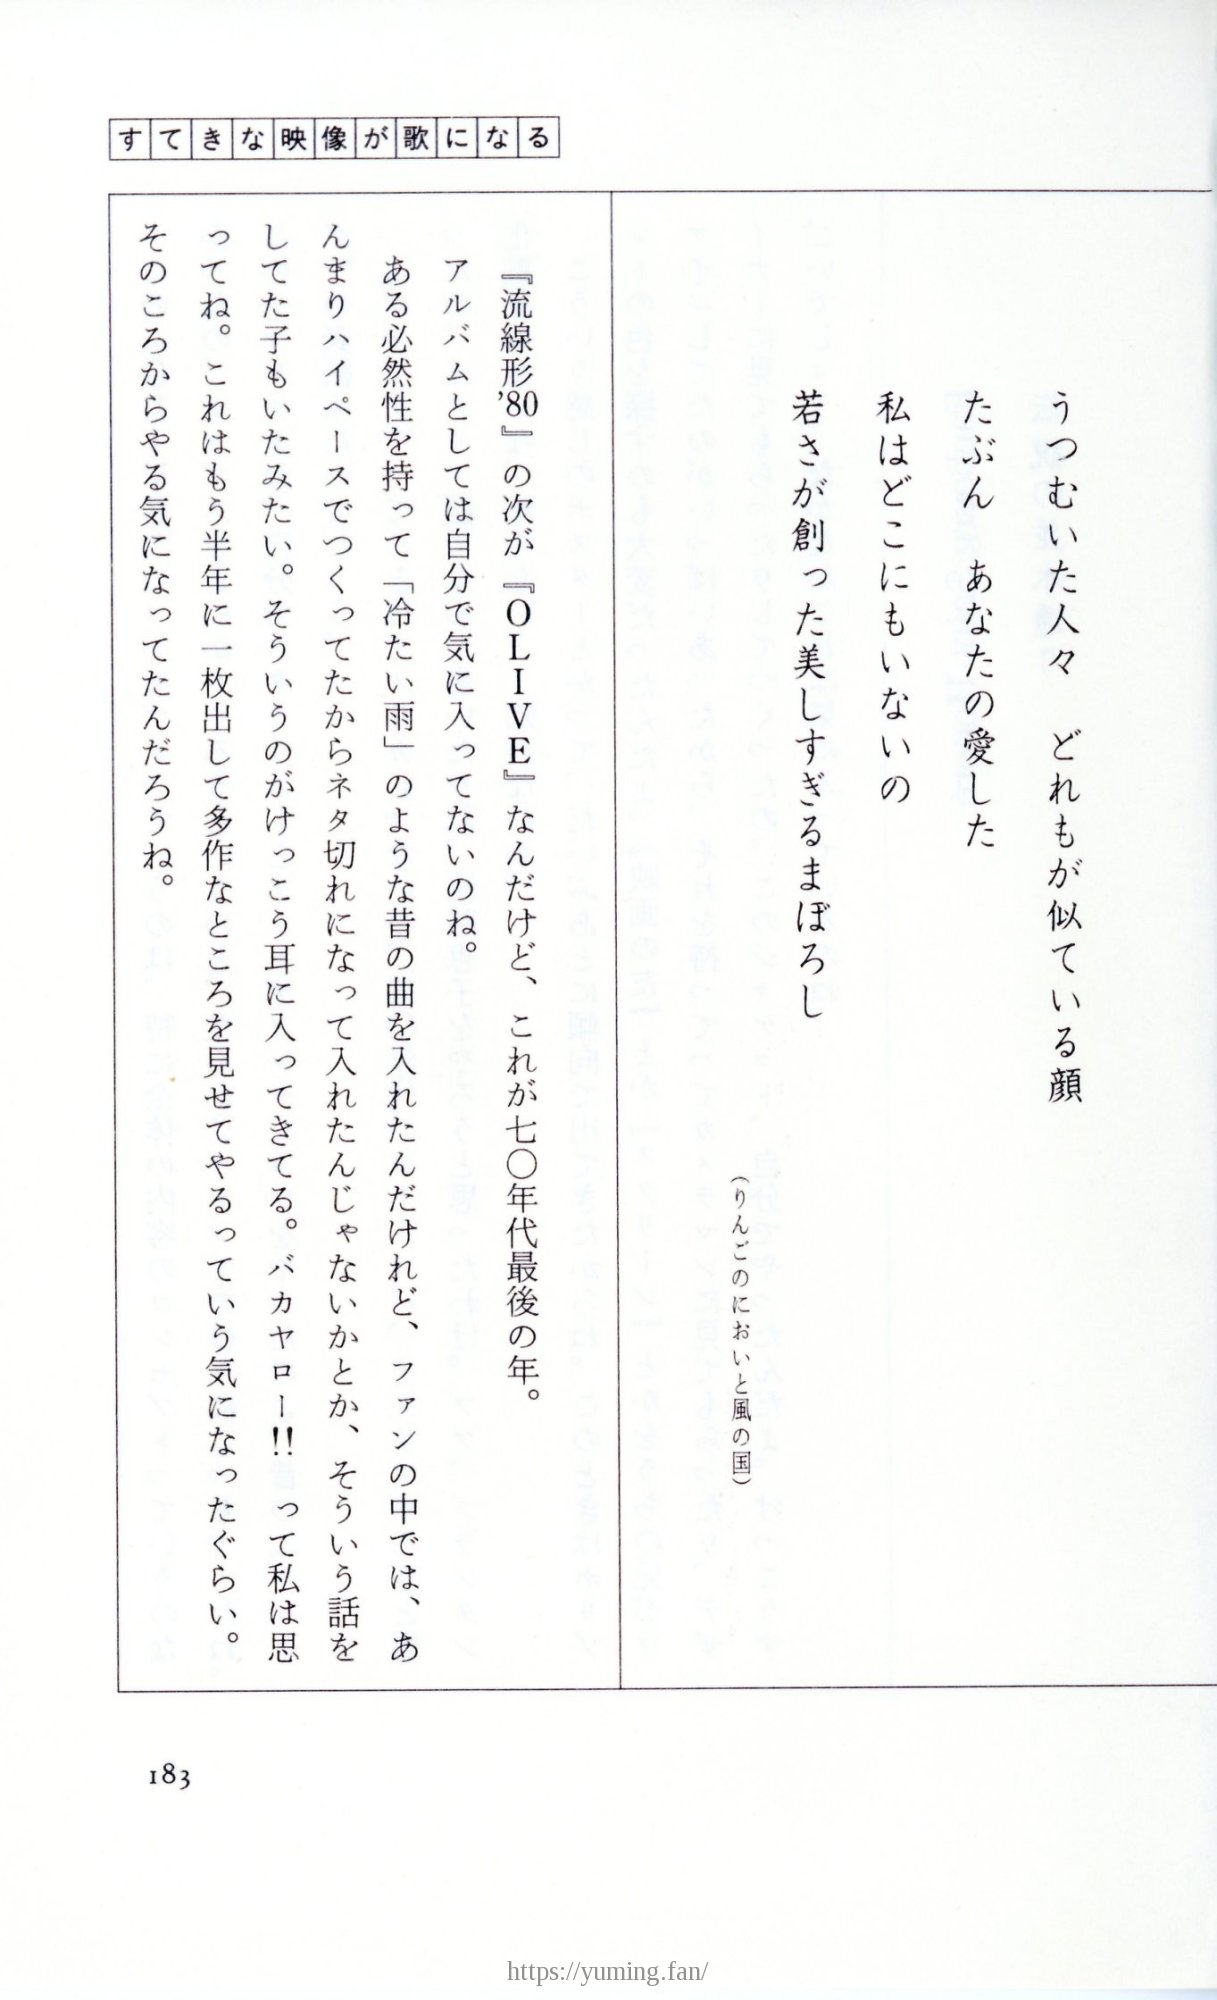 すてきな映像が歌になる
うつむいた人々　どれもが似ている顔
たぶん　あなたの愛した
私はどこにもいないの
若さが創った美しすぎるまぼろし
(りんごのにおいと風の国)
『流線形'80』の次が『OLIVE』なんだけど、これが七〇年代最後の年。
アルバムとしては自分で気に入ってないのね。
ある必然性を持って「冷たい雨」のような昔の曲を入れたんだけれど、ファンの中では、あ
んまりハイペースでつくってたからネタ切れになって入れたんじゃないかとか、そういう話を
してた子もいたみたい。そういうのがけっこう耳に入ってきてる。バカヤロー!!　って私は思
ってね。これはもう半年に一枚出して多作なところを見せてやるっていう気になったぐらい。
そのころからやる気になってたんだろうね。
183
https://yuming.fan/